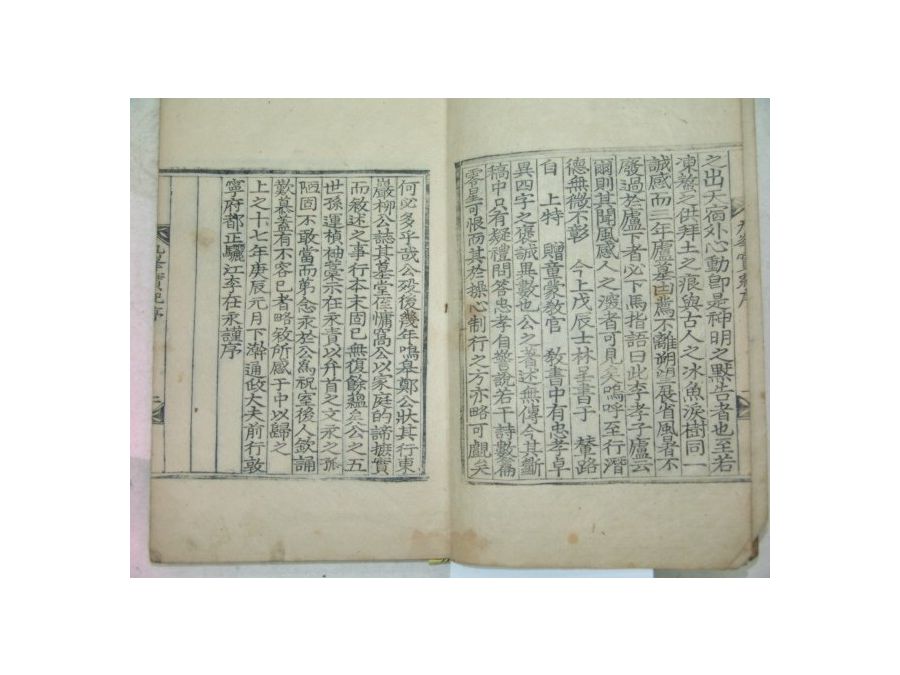 之出天宿外心動卽是神明之黙告者也至若
凍鰲之供拜土之痕與古人之冰魚淚樹同一
誠感而三年廬墓由薦不離朔望展省風暑不
廢過於廬下者必下馬指語曰此李孝子廬云
爾則其聞風感人之深者可見矣嗚呼至行潛
德無微不彰 今上戊辰士林呈書于 輦路
自 上特 贈童蒙敎官 敎書中有忠孝卓
異四字之褒誠異數也公之著述無傳今其斷
稿中只有疑禮問答忠孝自警說若干詩數篇
零星可恨而其於操心制行之方亦略可覰矣
何必多乎哉公歿後幾年嗚皐鄭公狀其行東
巖柳公誌其墓堂侄慵窩公以家庭的諦摭實
而敘述之事行本末固已無復餘蘊矣公之五
世孫運楨袖藁示在永責以弁首之文永之孤
陋固不敢當而第念永於公爲祝室後人欽誦
歎慕蓋有不容已者略敘所感于中以歸之
上之十七年庚辰元月下澣通政大夫前行敦
寧府都正驪江李在永謹序